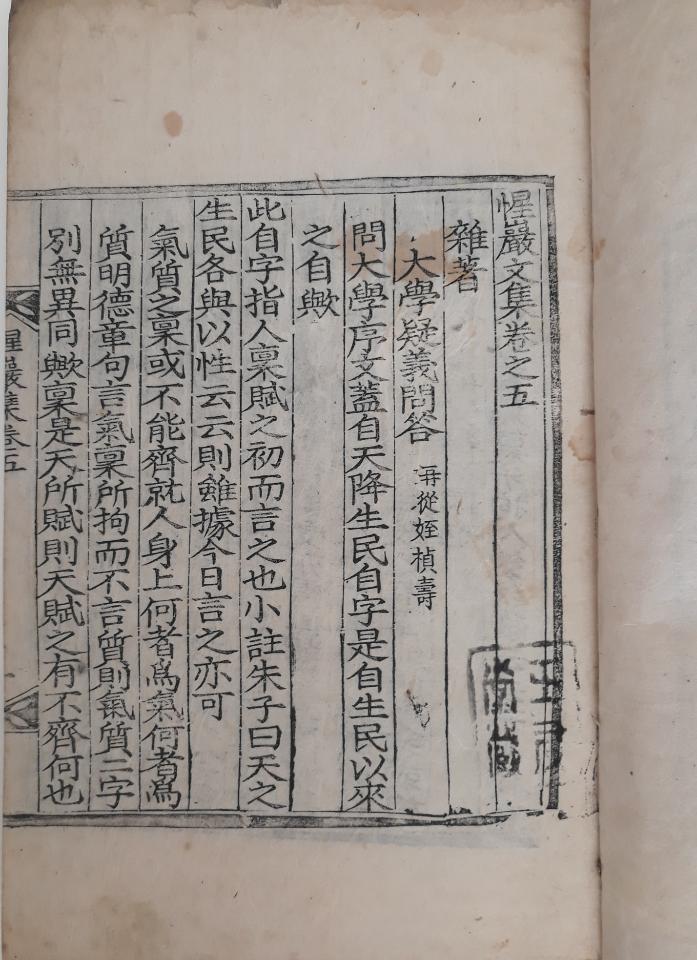 惺巖文集卷之五
雜著
大學疑義問答 再從姪楨壽
問大學序文蓋自天降生民自字是自生民以來
之自歟
此自字指人稟賦之初而言之也小註朱子曰天之
生民各與以性云云則雖據今日言之亦可
氣質之稟或不能齊就人身上何者爲氣何者爲
質明德章句言氣稟所拘而不言質則氣質二字
別無異同歟稟是天所賦則天賦之有不齊何也
惺巖集卷五